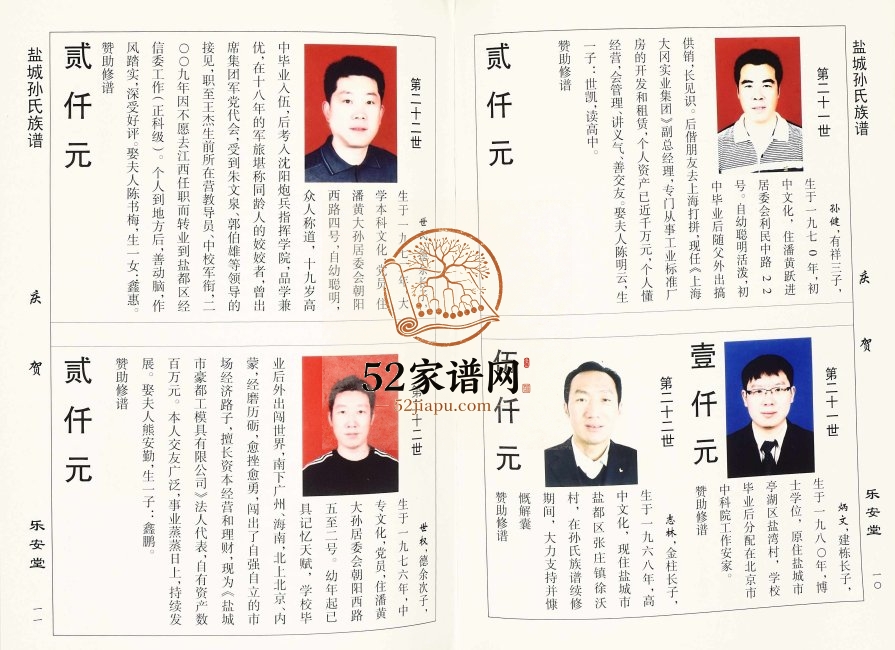 盐城孙氏族谱
庆贺
乐安堂
一〇
第二十一世
孙健，有祥三子，
生于一九七〇年，初
中文化，住潘黄跃进
居委会利民中路22
号。自幼聪明活泼，初
中毕业后随父外出搞
供销，长见识。后偕朋友去上海打拼，现任《上海
大冈实业集团》副总经理，专门从事工业标准厂
房的开发和租赁，个人资产已近千万元，个人懂
经营，会管理、讲义气、善交友。娶夫人陈明云，生
一子：世凯；读高中。
赞助修谱
贰仟元
第二十一世
炳文，建栋长子，
生于一九八〇年，博
士学位，原住盐城市
亭湖区盐湾村，学校
毕业后分配在北京市
中科院工作安家。
赞助修谱
壹仟元
第二十二世
志林，金柱长子，
生于一九六八年，高
中文化，现住盐城市
盐都区张庄镇徐沃
村，在孙氏族谱续修
期间，大力支持并慷
慨解囊
赞助修谱
伍仟元
第二十二世
生于一九七 年，大
学本科文化，党员，住
潘黄大孙居委会朝阳
西路四号，自幼聪明，
众人称道，十九岁高
中毕业入伍，后考入沈阳炮兵指挥学院，品学兼
优，在十八年的军旅堪称同龄人的姣姣者，曾出
席集团军党代会，受到朱文泉、郭伯雄等领导的
接见，职至王杰生前所在营教导员、中校军衔，二
〇〇九年因不愿去江西任职而转业到盐都区经
信委工作（正科级）。个人到地方后，善动脑，作
风踏实，深受好评。娶夫人陈书梅，生一女：鑫惠。
赞助修谱
贰仟元
第二十二世
世权，德余次子，
生于一九七六年，中
专文化，党员，住潘黄
大孙居委会朝阳西路
五至二号。幼年起已
具记忆天赋，学校毕
业后外出闯世界，南下广州、海南，北上北京、内
蒙，经磨历砺，愈挫愈勇，闯出了自强自立的市
场经济路子，擅长资本经营和理财，现为《盐城
市豪都工模具有限公司》法人代表，自有资产数
百万元。本人交友广泛，事业蒸蒸日上，持续发
展。娶夫人熊安勤，生一子：鑫鹏。
赞助修谱
贰仟元
盐城孙氏族谱
庆贺
乐安堂
一一
52家谱网
52jiapu.com